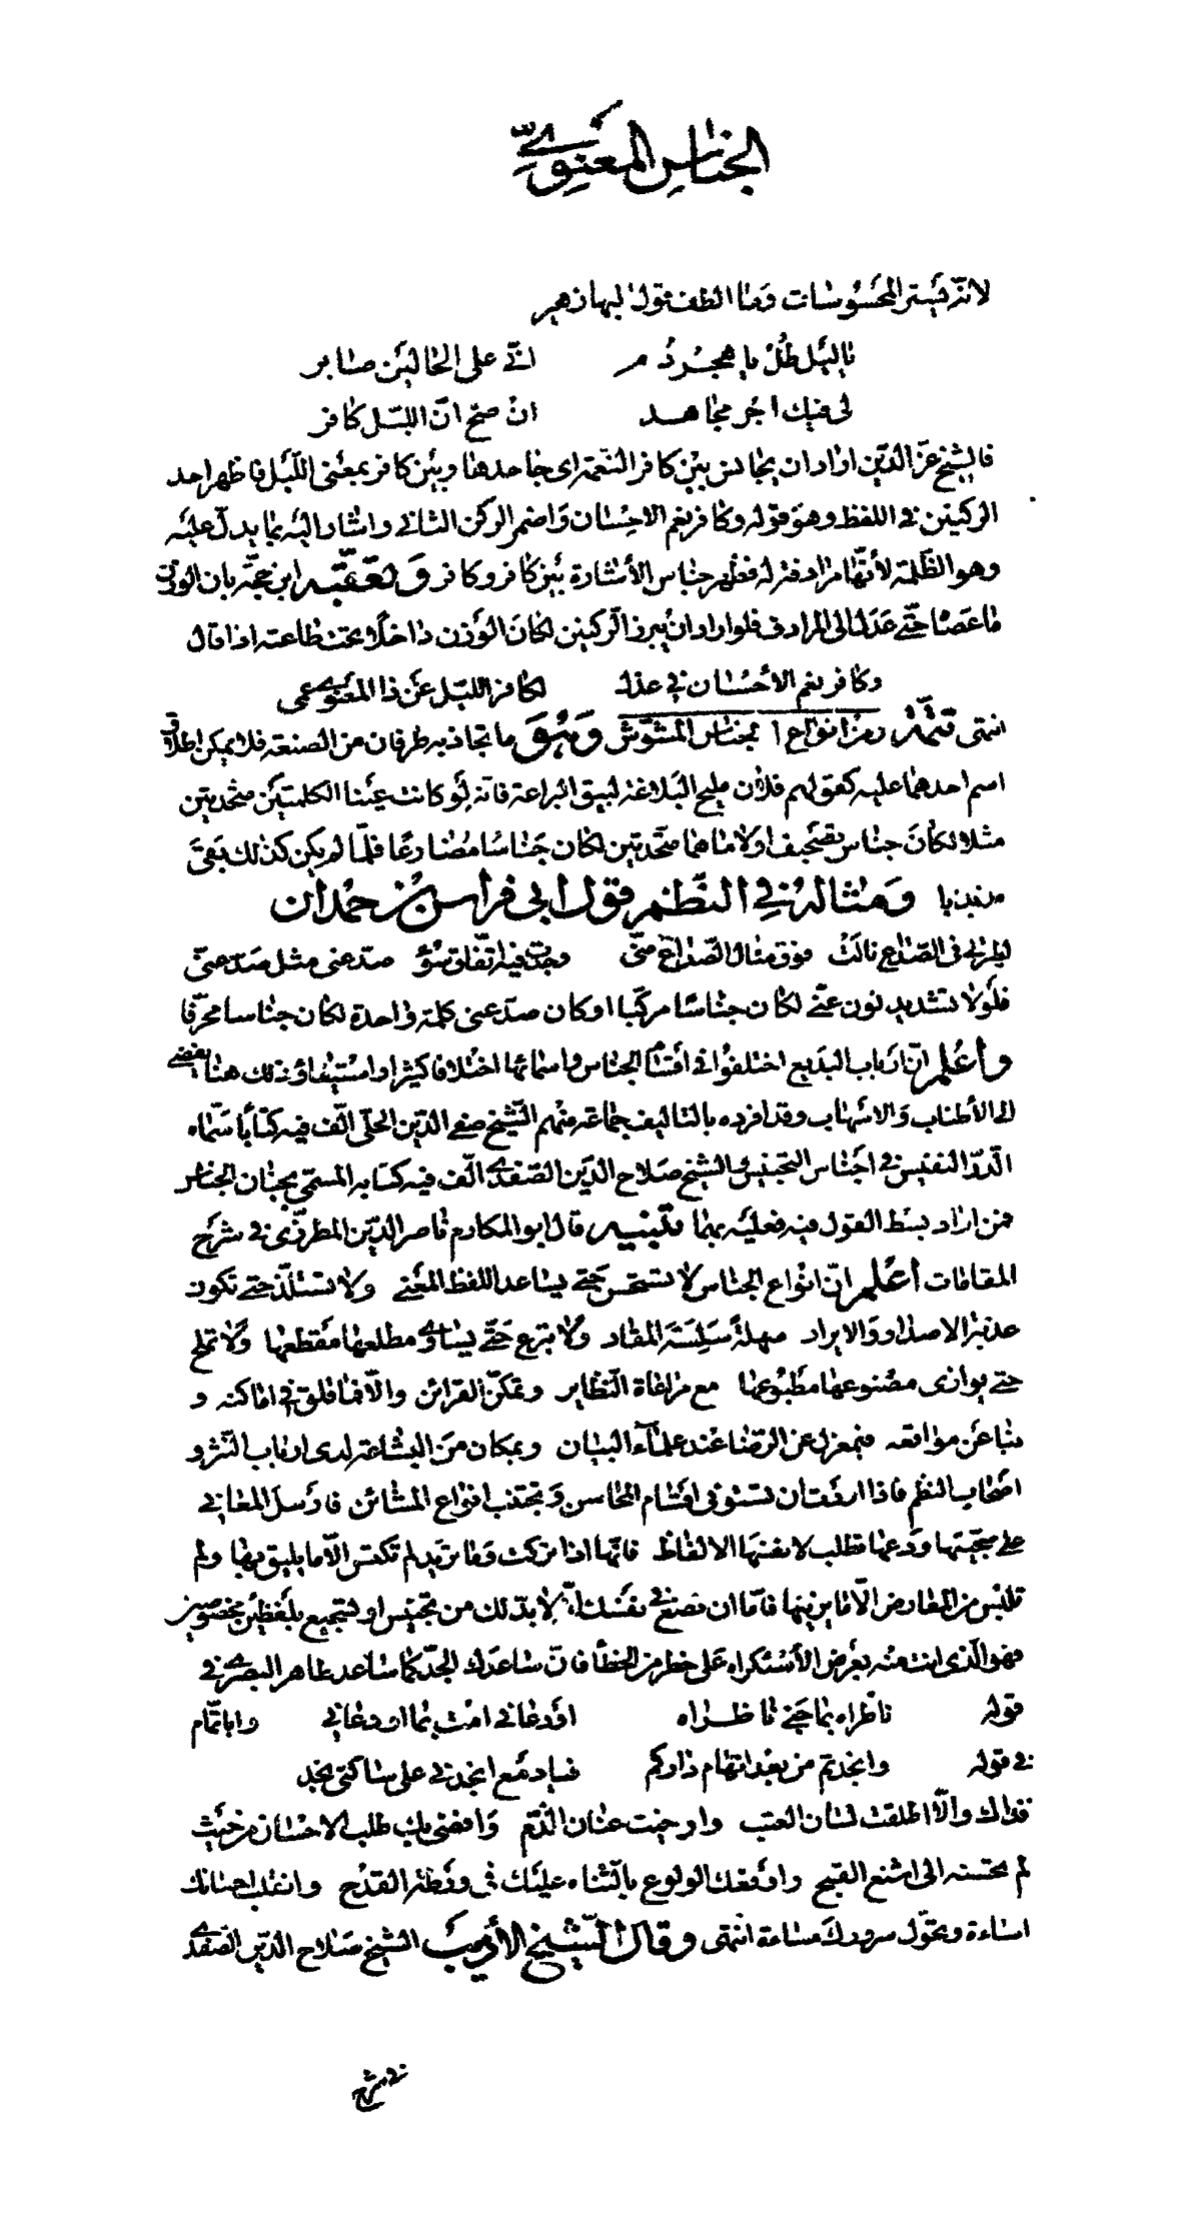 الجناس المعنوي
لانه يستر المحسوسات وما الطف قول البها زهير
يا ليل طل يا هجر دم اني على الحالين صابر
لي فيك اجر مجاهد ان صح ان الليل كافر
فالشيخ عز الدين اراد ان يجانس بين كافر النعمة اى جاحدها وبين كافر بمعنى الليل فاظهر احد
الركنين في اللفظ وهو قوله وكافر نعم الاحسان واضمر الركن الثاني واشار اليه بما يدل عليه
وهو الظلمة لأنها مرادفة له فظهر جناس الأشارة بين كافر وكافر وتعقبه ابن حجة بان الوزن
ما عصا حتى عدل الى المرادف فلو اراد ان يبرز الركنين لكان الوزن داخلا تحت طاعته اذا قال
وكافر نعم الأحسان في عذل لكافر الليل عن ذا المعنوي عمى
انتهى تتمة ومن انواع الجناس المشوش وهو ما تجاذبه طرفان من الصنعة فلا يمكن اطلاق
اسم احدهما عليه كقولهم فلان مليح البلاغة لبيق البراعة فانه لو كانت عينا الكلمتين متحدتين
مثلا لكان جناس تصحيف او لاماهما متحدتين لكان جناسا مضارعا فلما لم يكن كذلك بقى
مذبذبا ومثاله في النظم قول ابى فراس بن حمدان
لطيرتى فى الصداع نالت فوق منال الصداع منى وجدت فيه اتفاق سوء صدعنى مثل صد عنى
فلولا تشديد نون عنى لكان جناسا مركبا او كان صد عنى كلمة واحدة لكان جناسا محرفا
واعلم ان ارباب البديع اختلفوا في اقسام الجناس واسمائها اختلافا كثيرا واستيفاؤ ذلك هنا يفضي
الى الأطناب والاسهاب وقد افرده بالتاليف جماعة منهم الشيخ صفي الدين الحلى الف فيه كتابا سماه
الدر النفيس في اجناس التجنيس والشيخ صلاح الدين الصفدي الف فيه كتابه المسمى بجنان الجناس
فمن اراد بسط القول فيه فعليه بهما تنبيه قال ابو المكارم ناصر الدين المطرزى في شرح
المقامات اعلم ان انواع الجناس لا تستحسن حتى يساعد اللفظ المعنى ولا تستلذ حتى تكون
عذبة الاصدار والايراد سهلة سلسة المقاد ولا تبرع حتى يساوي مطلعها مقطعها ولا تملح
حتى يوازى مصنوعها مطبوعها مع مراعاة النظاير وتمكن القرائن والا فما قلق في اماكنه و
نبا عن مواقعه فبمعزل عن الرضا عند علماء البيان وبمكان من البشاعة لدى ارباب النثر و
اصحاب النظم فاذا اردت ان تستوفى اقسام المحاسن وتجتنب انواع المشائن فارسل المعاني
على سجيتها ودعها تطلب لانفسها الالفاظ فانها اذا تركت وما تريد لم تكتس الا ما يليق بها ولم
تلبس من المعارض الا ما يزينها فاما ان تضع في نفسك انه لا بد لك من تجنيس او تسجيع بلفظين مخصوصين
فهو الذى انت منه بعرض الأستكراه على خطر من الخطأ فان ساعدك الجد كما ساعد طاهر البصري في
قوله ناظراه بما جنى ناظراه اودعانى امت بما اودعاني وابا تمام
في قوله وانجدتم من بعد اتهام داركم فيا دمع انجدنى على ساكنى نجد
فذاك والا اطلقت لسان العتب وارخيت عنان الذم وافضى بك طلب الاحسان من حيث
لم تحسنه الى اشنع القبيح واوقعك الولوع بالثناء عليك في ورطة القدح وانقلب احسانك
اساءة وتحول سرورك مساءة انتهى وقال الشيخ الأديب الشيخ صلاح الدين الصفدي
في شرح